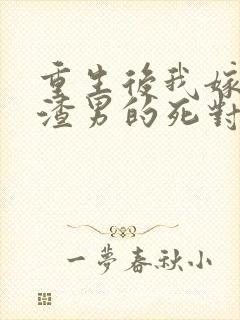 重生後我嫁
渣男的死對
一夢春秋小